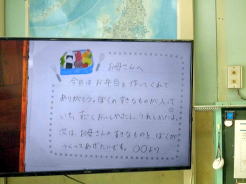 お母さんへ
今日はお弁当を作ってくれて
ありがとう。ぼくのすきなものが入って
いて、すごくおいしかったし、うれしかったよ。
次は、お母さんのすきなものを、ぼくが
つくってあげたいです。 〇〇より